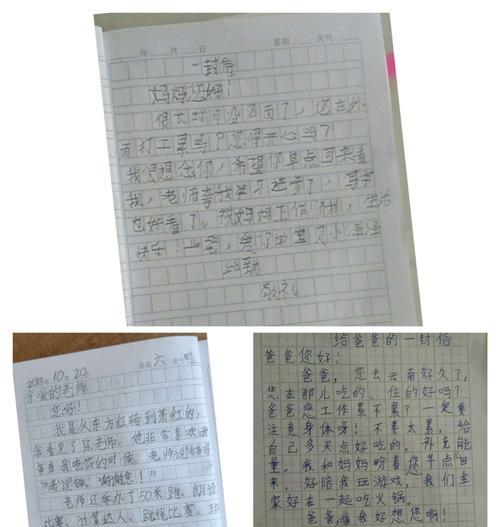 年 月 日 星期 天气
一封信
妈妈您好！
很长时间没见面了，您在外
面打工累吗？您得开心吗？
我很想念你，希望你早点回来看
我，老师夸我学习进步了，写字
也好看了。祝妈妈工作顺利，生活
快乐！爱你的宝贝小泽泽
此致
敬礼
10月20 星期六 天气
亲爱的老师
您好！
我是从东方红转到萧红的，
我看见了陈老师，他非常喜欢我
每当我吃饭的时候，老师
谢谢您！
老师还举办了50米跑、朗
比赛、计算达人、跳绳比赛，
给爸爸的一封信
爸爸您好！
爸爸，您去云南好久了，
您在那儿吃的、住的好吗？
爸爸您工作累不累？一定要
注意身体呀！不要太累，给
自己多买点好吃的，补充能
量。我和妈妈盼着您早点回
来，好陪我玩游戏，我们全
家好在一起吃火锅。
爸爸爸爸我好想您啊！